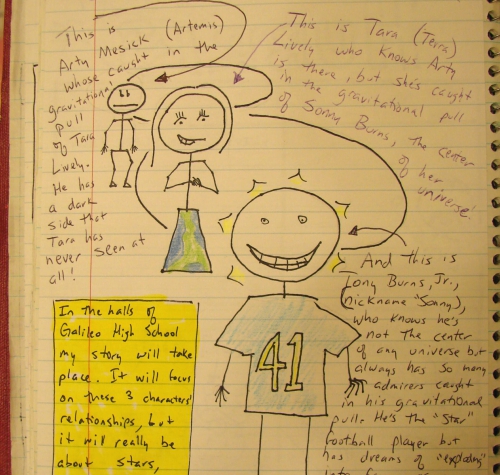 This is
Arty Mesick (Artemis)
whose caught in the
gravitational
pull
of Tara
Lively.
He has
a dark
side that
Tara has
never seen at
all!
This is Tara (Terra)
Lively who knows Arty
is there, but she's caught
in the gravitational pull
of Sonny Burns, the center
of her
universe!
And this is
Tony Burns, Jr.,
(nickname "Sonny"),
who knows he's
not the center
of any universe but
always has so many
admirers caught
in his gravitational
pull. He's the "star"
football player but
has dreams of "exploding"
41
In the halls of
Galileo High School
my story will take
place. It will focus
on these 3 characters'
relationships, but
it will really be
about stars,